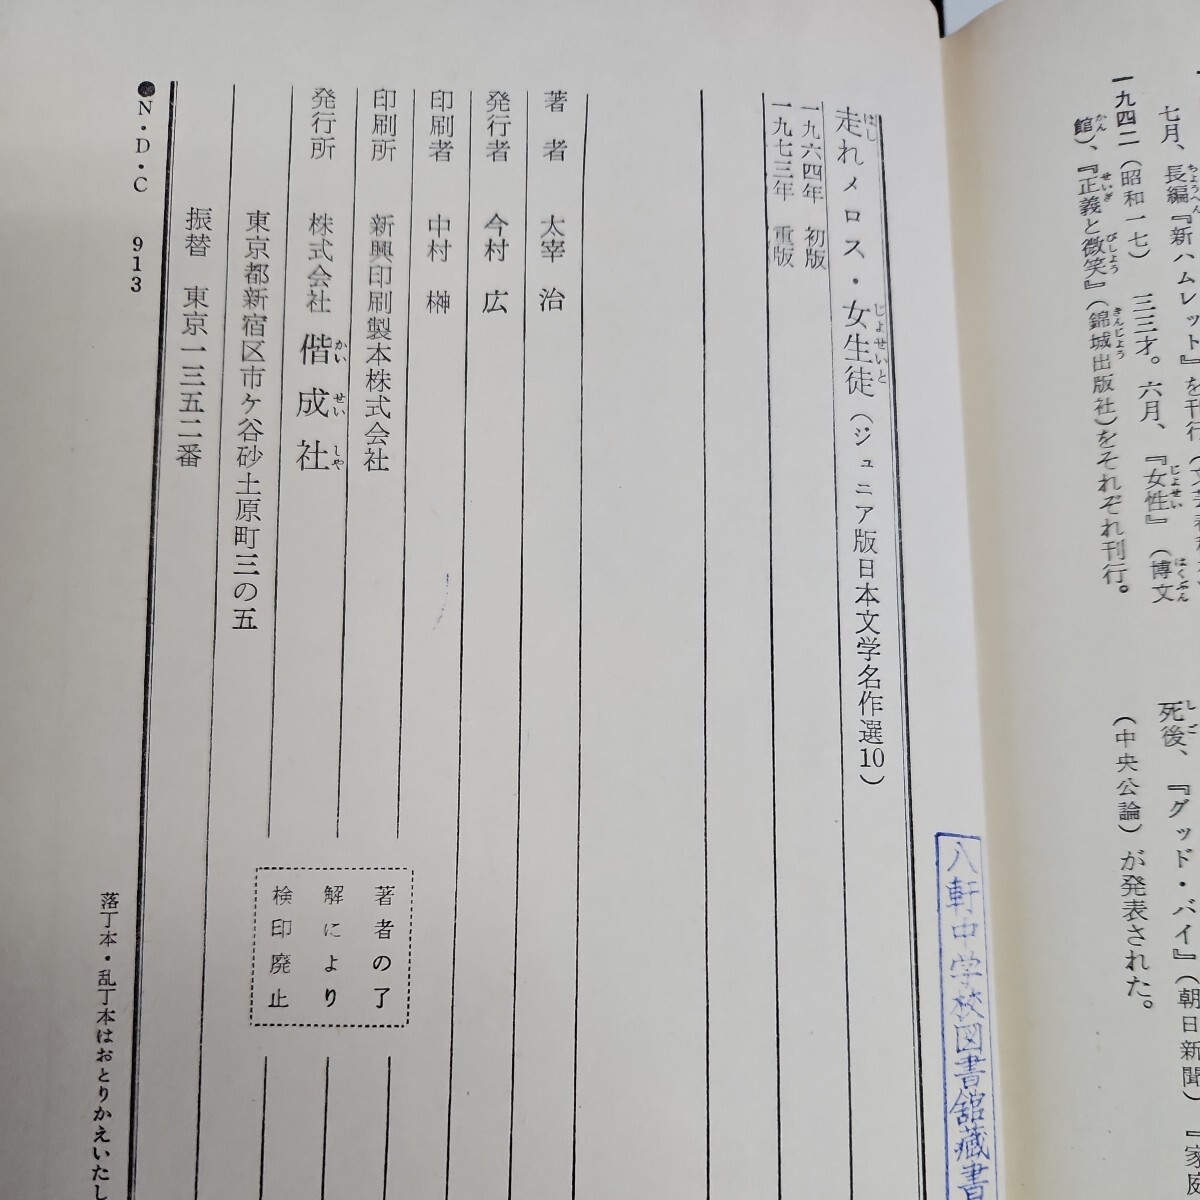 七月、長編『新ハムレット』を刊行
一九四二(昭和一七) 三三才。六月、『女性』(博文
館)、『正義と微笑』(錦城出版社)をそれぞれ刊行。
死後、『グッド・バイ』(朝日新聞)『家庭
(中央公論)が発表された。
八軒中学校図書舘蔵書
走れメロス・女生徒(ジュニア版日本文学名作選10)
一九六四年 初版
一九七三年 重版
著者 太宰治
発行者 今村広
印刷者 中村榊
印刷所 新興印刷製本株式会社
発行所 株式会社 偕成社
東京都新宿区市ケ谷砂土原町三の五
振替 東京一三五二番
著者の了
解により
検印廃止
●N・D・C 913
落丁本・乱丁本はおとりかえいたし